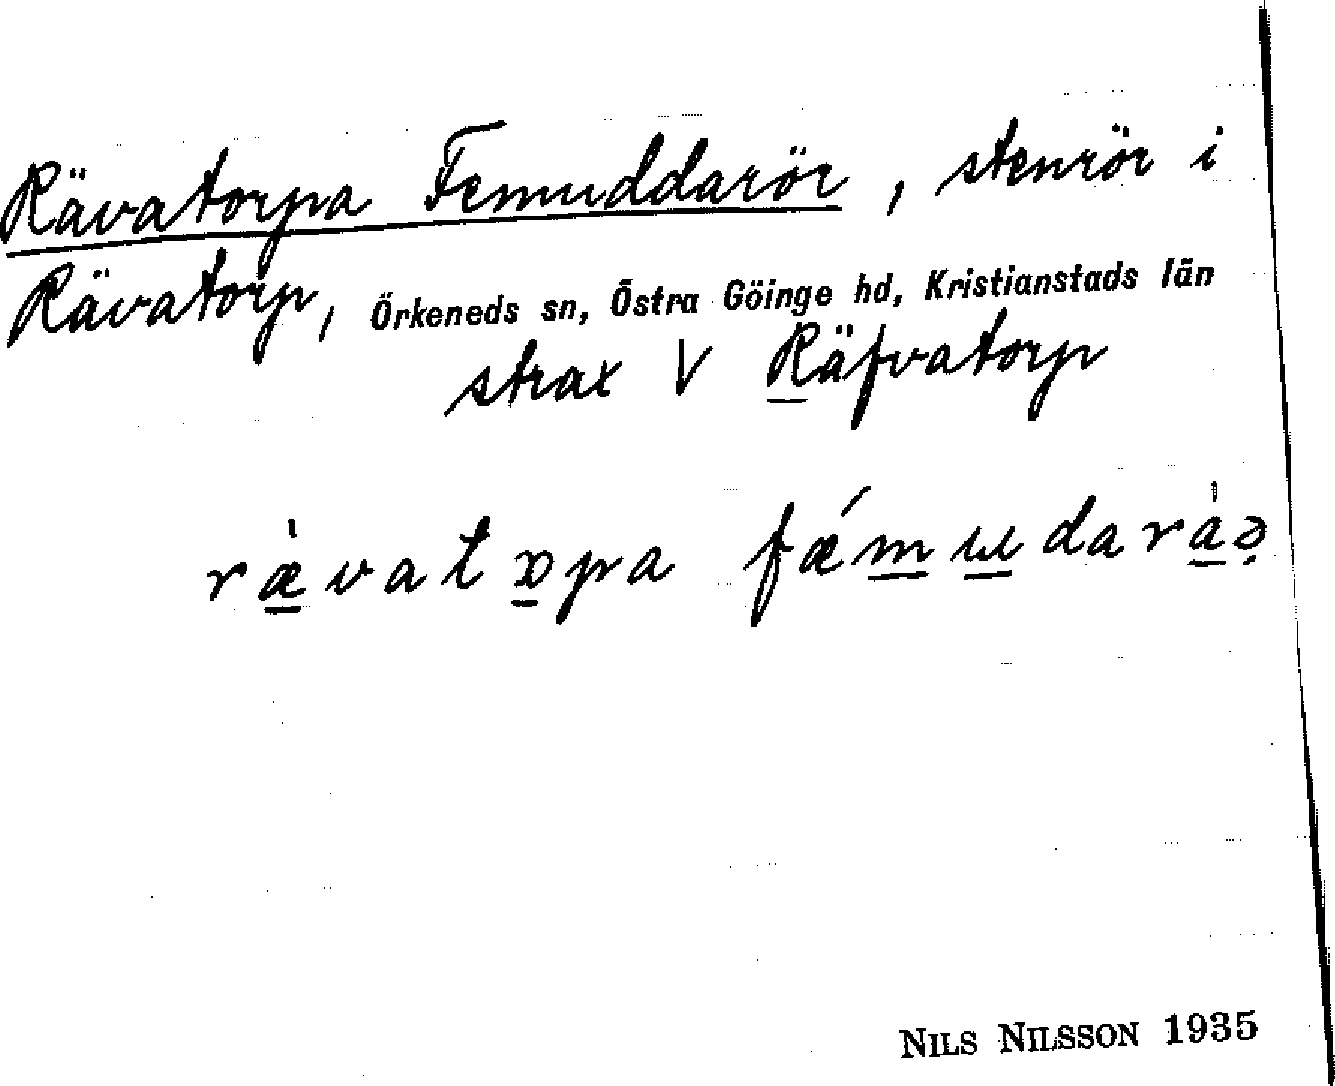 Rävatorpa Femuddarör, stenrör i
Rävatorp, Örkeneds sn, Östra Göinge hd, Kristianstads län
strax V Räfvatorp
ræ̀vatɒpa fǽmɯdaràə̣
NILS NILSSON 1935